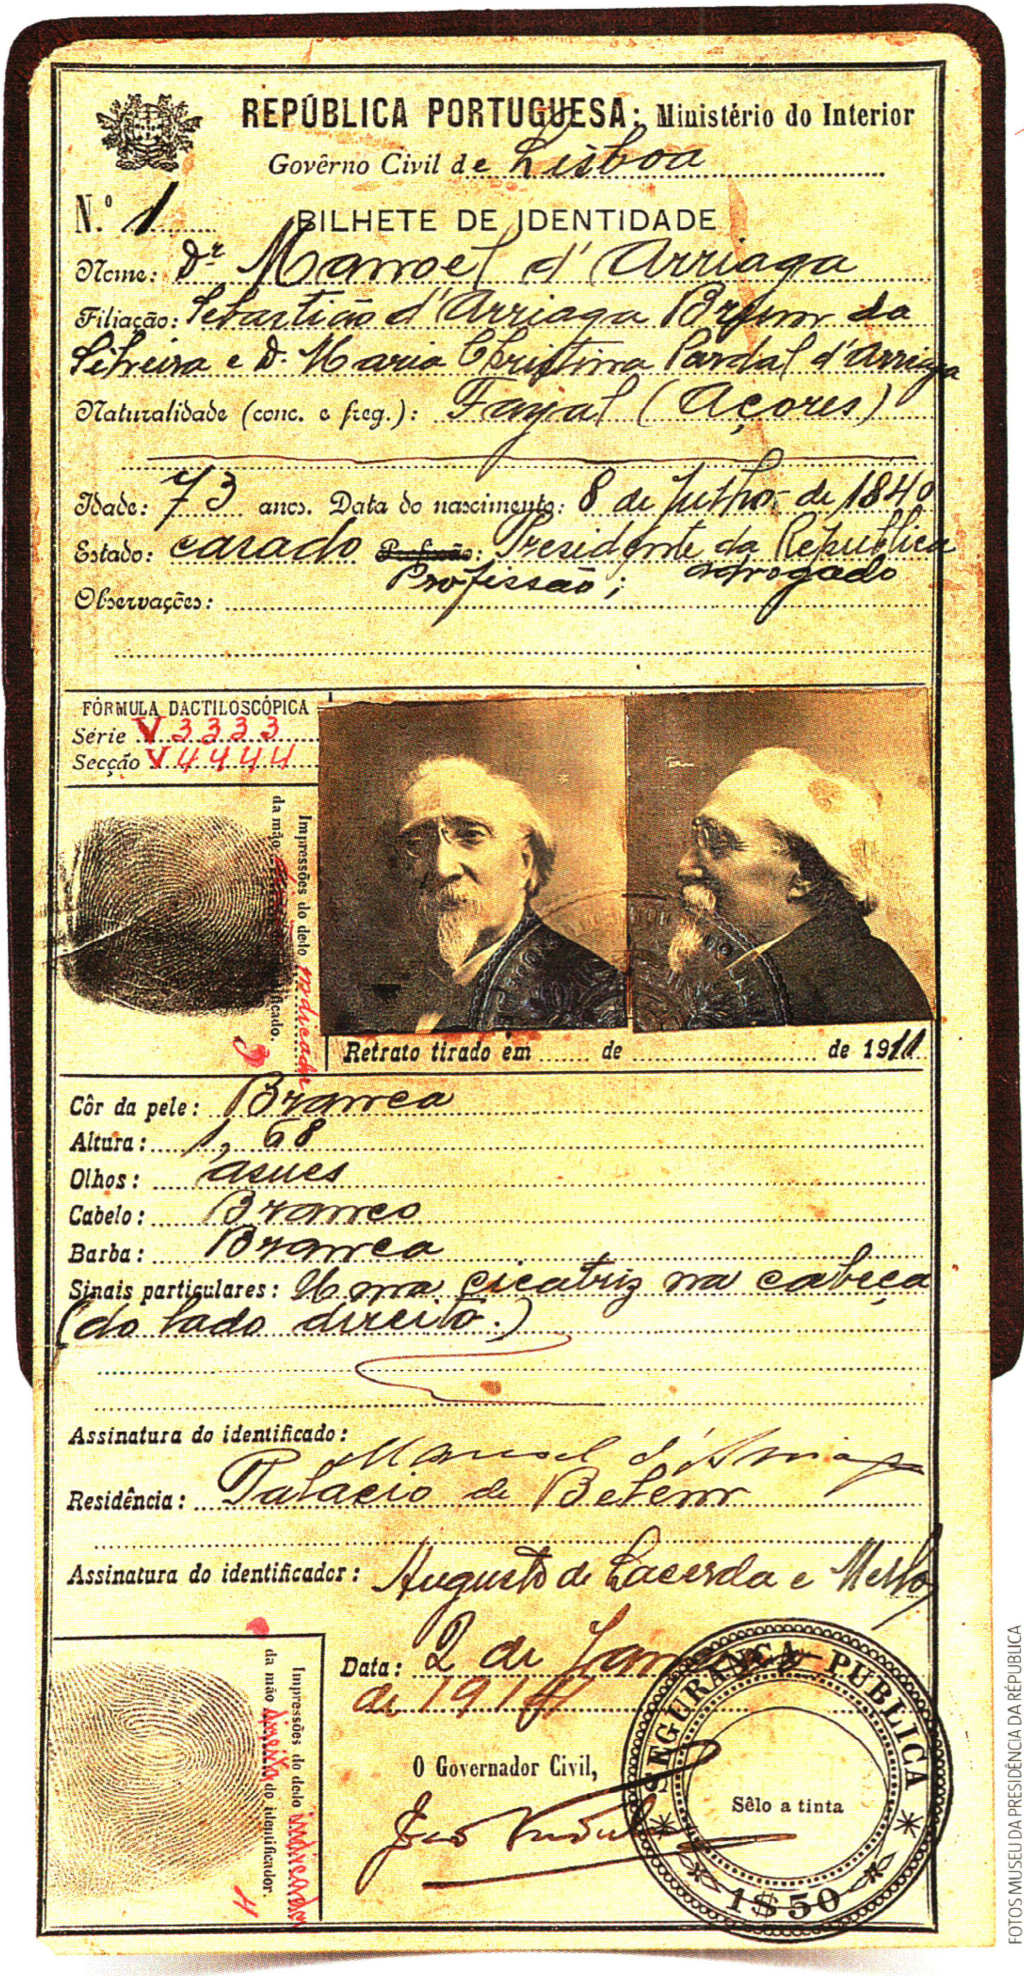 REPÚBLICA PORTUGUESA: Ministério do Interior
Govêrno Civil de Lisboa
N.º 1
BILHETE DE IDENTIDADE
Nome: Dr. Manoel d'Arriaga
Filiação: Sebastião d'Arriaga Brum da
Silveira e D. Maria Christina Pardal d'Arriaga
Naturalidade (conc. e freg.): Fayal (Açores)
Idade: 73 anos. Data do nascimento: 8 de Julho de 1840
Estado: casado Profissão: Presidente da Republica
Profissão; advogado
Observações:
FÓRMULA DACTILOSCÓPICA
Série V 3333
Secção V 4444
Impressões do dedo indicador
da mão direita do identificado.
Retrato tirado em de de 1911
Côr da pele: Branca
Altura: 1,68
Olhos: asues
Cabelo: Branco
Barba: Branca
Sinais particulares: Uma cicatriz na cabeça
(do lado direito.)
Assinatura do identificado:
Manuel d'Arriaga
Residência: Palacio de Belem
Assinatura do identificador: Augusto de Lacerda e Mello
Data: 2 de Jan
de 1914
O Governador Civil,
SEGURANÇA PUBLICA
Sêlo a tinta
1$50
Impressões do dedo indicador
da mão direita do identificador.
4
FOTOS MUSEU DA PRESIDÊNCIA DA REPÚBLICA